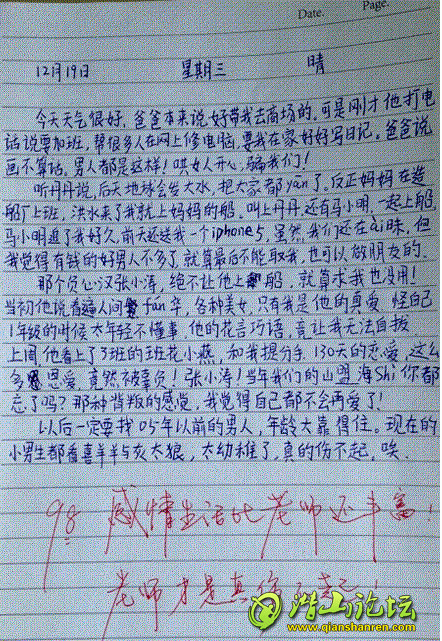 Date.
Page.
12月19日 星期三 晴
今天天气很好，爸爸本来说好带我去商场的，可是刚才他打电
话说要加班，帮很多人在网上修电脑，要我在家好好写日记。爸爸说
画不算话，男人都是这样！哄女人开心，骗我们！
听丹丹说，后天地球会发大水，把大家都yān了。反正妈妈在造
船厂上班，洪水来了我就上妈妈的船。叫上丹丹，还有马小明，一起上船，
马小明追了我好久，前天还送我一个iphone5，虽然我们还在ai昧，但
我觉得有钱的好男人不多了，就算最后不能取我，也可以做朋友的。
那个负心汉张小涛，绝不让他上船，就算求我也没用！
当初他说看遍人间fán华，各种美女，只有我是他的真爱，怪自己
1年级的时候太年轻不懂事，他的花言巧语，竟让我无法自拔
上周他看上了3班的班花小燕，和我提分手，130天的恋爱，这么
多恩爱，竟然被辜负！张小涛！当年我们的山盟海Shi你都
忘了吗？那种背叛的感觉，我觉得自己都不会再爱了！
以后一定要找05年以前的男人，年龄大靠得住。现在的
小男生都看喜羊羊与灰太狼，太幼稚了，真的伤不起，唉．
98 感情生活比老师还丰富！
老师才是真伤不起
潜山论坛
www.qianshanren.com